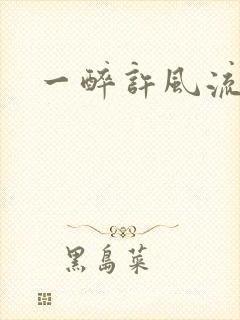 一醉許風流
黑島菜